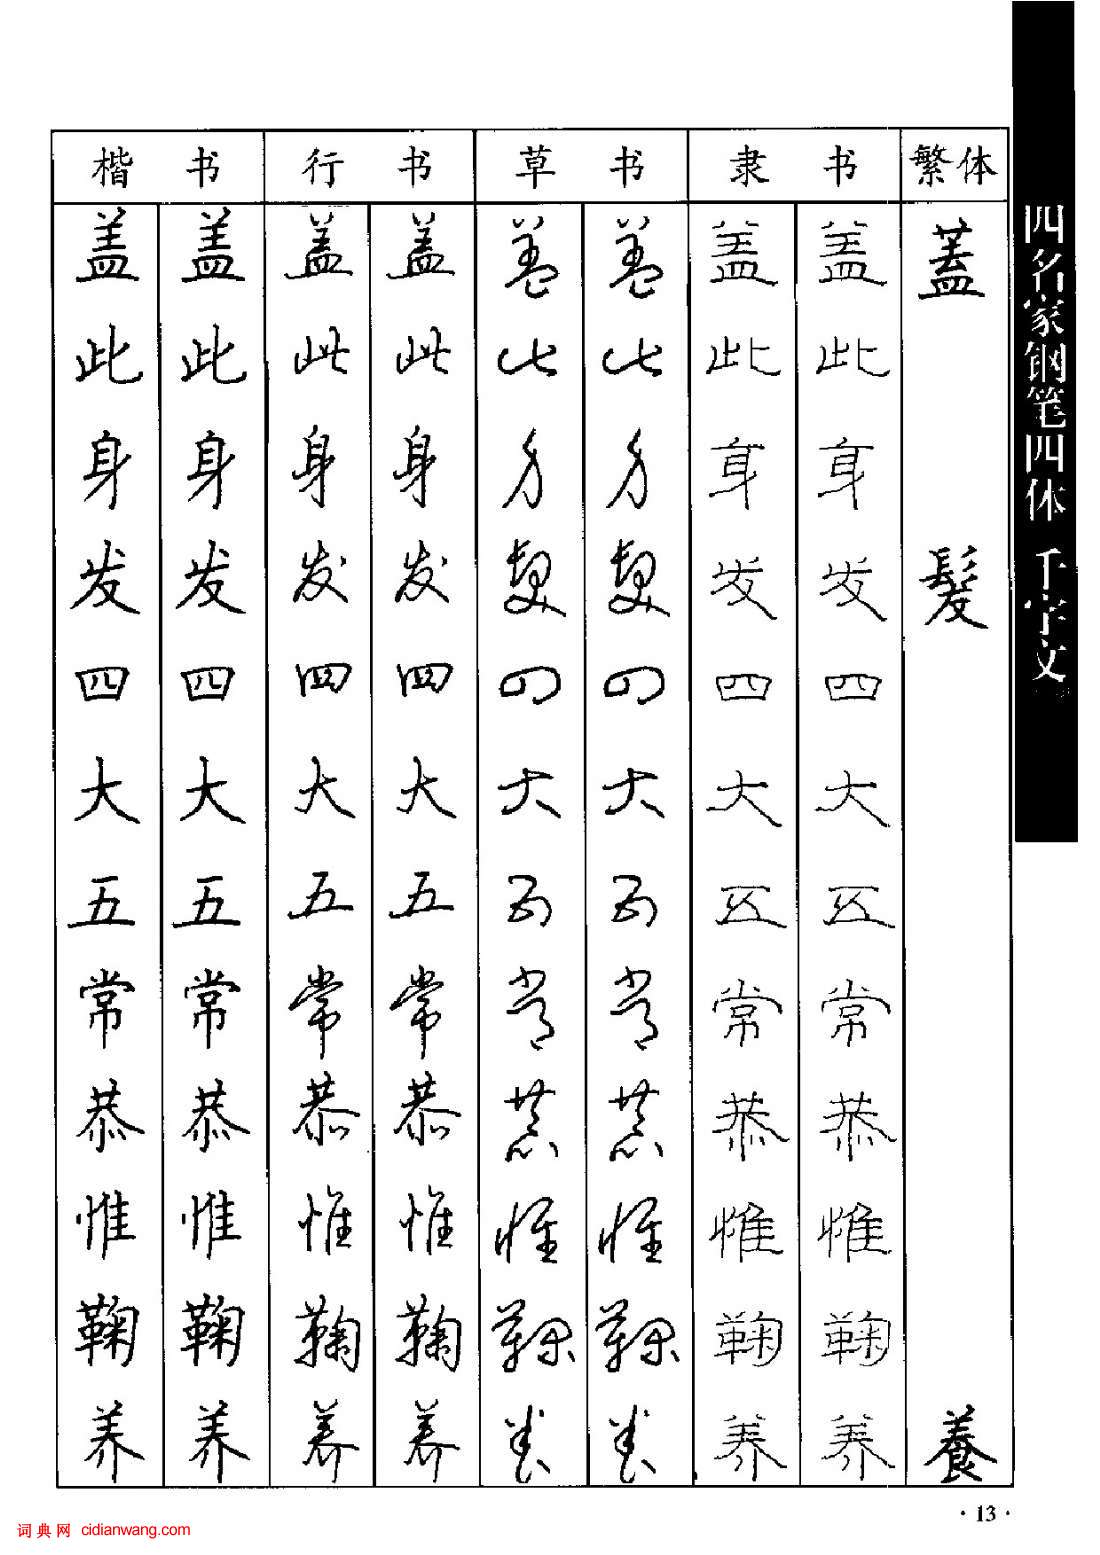 楷书 行书 草书 隶书 繁体
盖 盖 盖 盖 盖 盖 盖 盖 蓋
此 此 此 此 此 此 此 此
身 身 身 身 身 身 身 身
发 发 发 发 髮 髮 发 发 髮
四 四 四 四 四 四 四 四
大 大 大 大 大 大 大 大
五 五 五 五 五 五 五 五
常 常 常 常 常 常 常 常
恭 恭 恭 恭 恭 恭 恭 恭
惟 惟 惟 惟 惟 惟 惟 惟
鞠 鞠 鞠 鞠 鞠 鞠 鞠 鞠
养 养 养 养 养 养 养 养 養
四名家钢笔四体 千字文
·13·
词典网 cidianwang.com